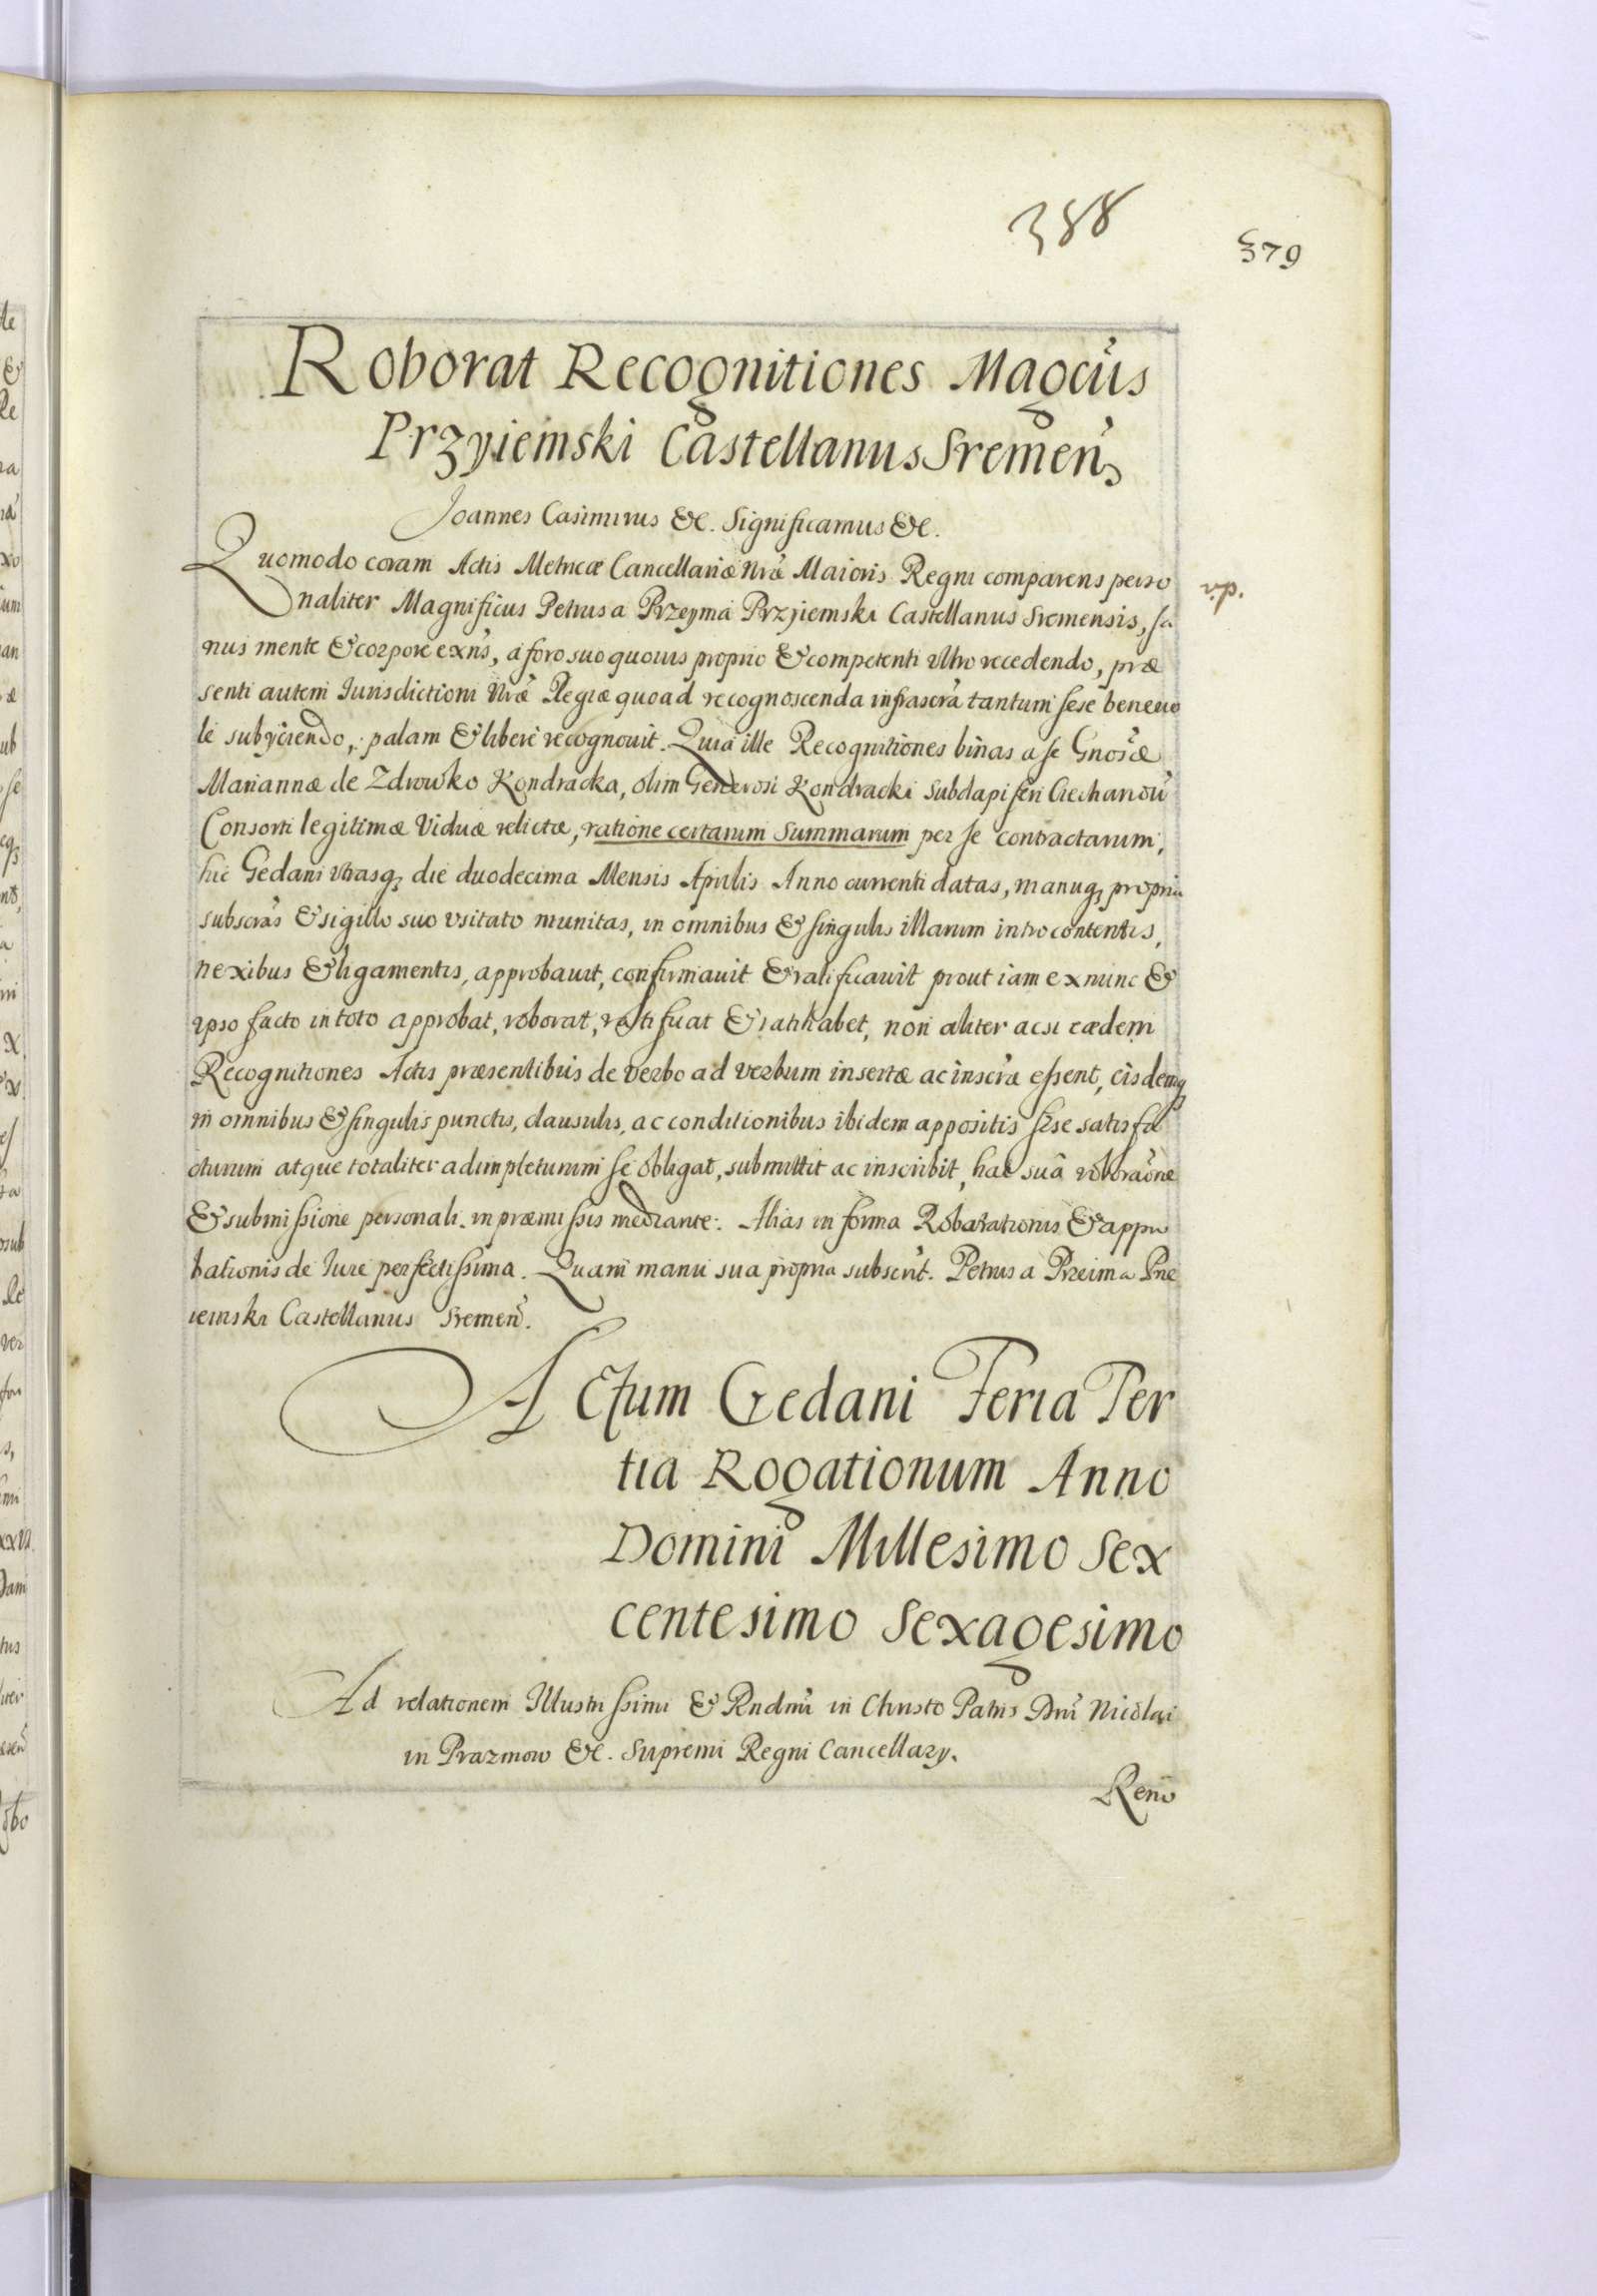 388
379
Roborat Recognitiones Magcus
Przyiemski Castellanus Sremen
Joannes Casimirus &c. Significamus &c.
Quomodo coram Actis Metricæ Cancellariæ Nræ Maioris Regni comparens perso
naliter Magnificus Petrus a Przeyma Przyiemski Castellanus Sremensis, sa
nus mente & corpore exns, a foro suo quouis proprio & competenti vltro recedendo, præ
senti autem Iurisdictioni Nræ Regiæ quoad recognoscenda infrascra tantum sese beneuo
le subyciendo, palam & libere recognouit. Quia ille Recognitiones binas a se Gnosæ
Mariannæ de Zdrowko Kondracka, olim Generosi Kondracki Subdapiferi Ciechanou
Consorti legitimæ Viduæ relictæ, ratione certarum Summarum per se contractarum,
hic Gedani vtrasq die duodecima Mensis Aprilis Anno currenti datas, manuq propria
subscras & sigillo suo vsitato munitas, in omnibus & singulis illarum introcontentis,
nexibus & ligamentis, approbauit, confirmauit & ratificauit prout iam ex nunc &
ipso facto in toto approbat, roborat, ratificat & ratihabet, non aliter acsi eædem
Recognitiones Actis præsentibus de verbo ad verbum insertæ ac inscræ essent, eisdemq
in omnibus & singulis punctis, clausulis, ac conditionibus ibidem appositis sese satisfa
cturum atque totaliter adimpleturum se obligat, submittit ac inscribit, hac suâ roboraone
& submissione personali in præmissis mediante. Alias in forma Roborationis & appro
bationis de Iure perfectissima. Quam manu sua propria subscrit. Petrus a Przeima Prze
iemski Castellanus Sremen.
Actum Gedani Feria Ter
tia Rogationum Anno
Domini Millesimo Sex
centesimo Sexagesimo
Ad relationem Illustrissimi & Rndmi in Christo Patris Dni Nicolai
in Prazmow &c. Supremi Regni Cancellary.
Reno